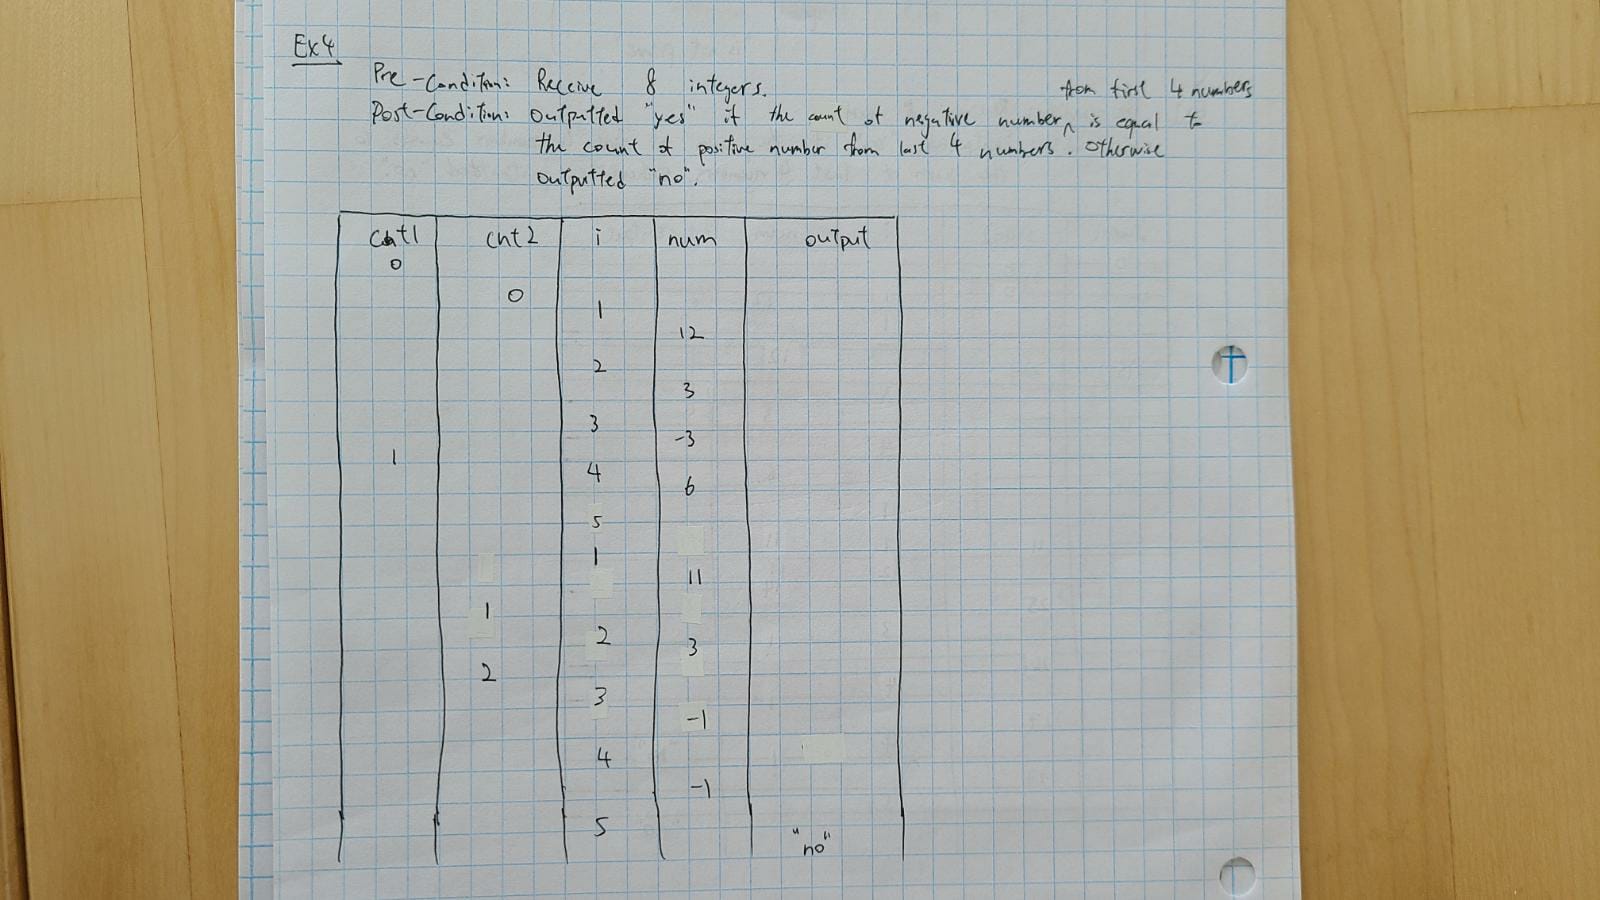 Ex4
Pre-Condition: Receive 8 integers.
from first 4 numbers
Post-Condition: outputted "yes" if the count of negative number ^ is equal to
the count of positive number from last 4 numbers. Otherwise
outputted "no".
cnt1 cnt2 i num output
0
0
1
12
2
3
3
-3
1
4
6
5
1
11
1
2
3
2
3
-1
4
-1
5
"no"